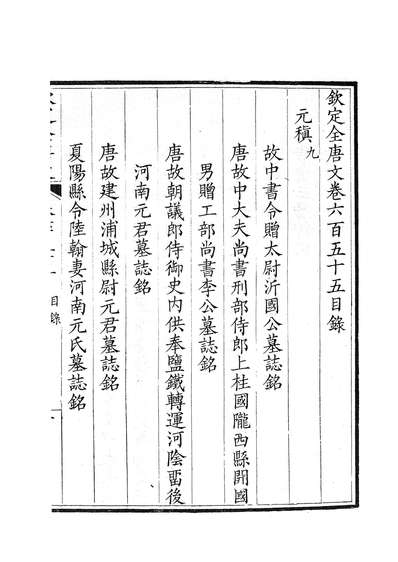 欽定全唐文卷六百五十五目錄
元稹九
故中書令贈太尉沂國公墓誌銘
唐故中大夫尚書刑部侍郎上柱國隴西縣開國
男贈工部尚書李公墓誌銘
唐故朝議郎侍御史內供奉鹽鐵轉運河陰畱後
河南元君墓誌銘
唐故建州浦城縣尉元君墓誌銘
夏陽縣令陸翰妻河南元氏墓誌銘
目錄